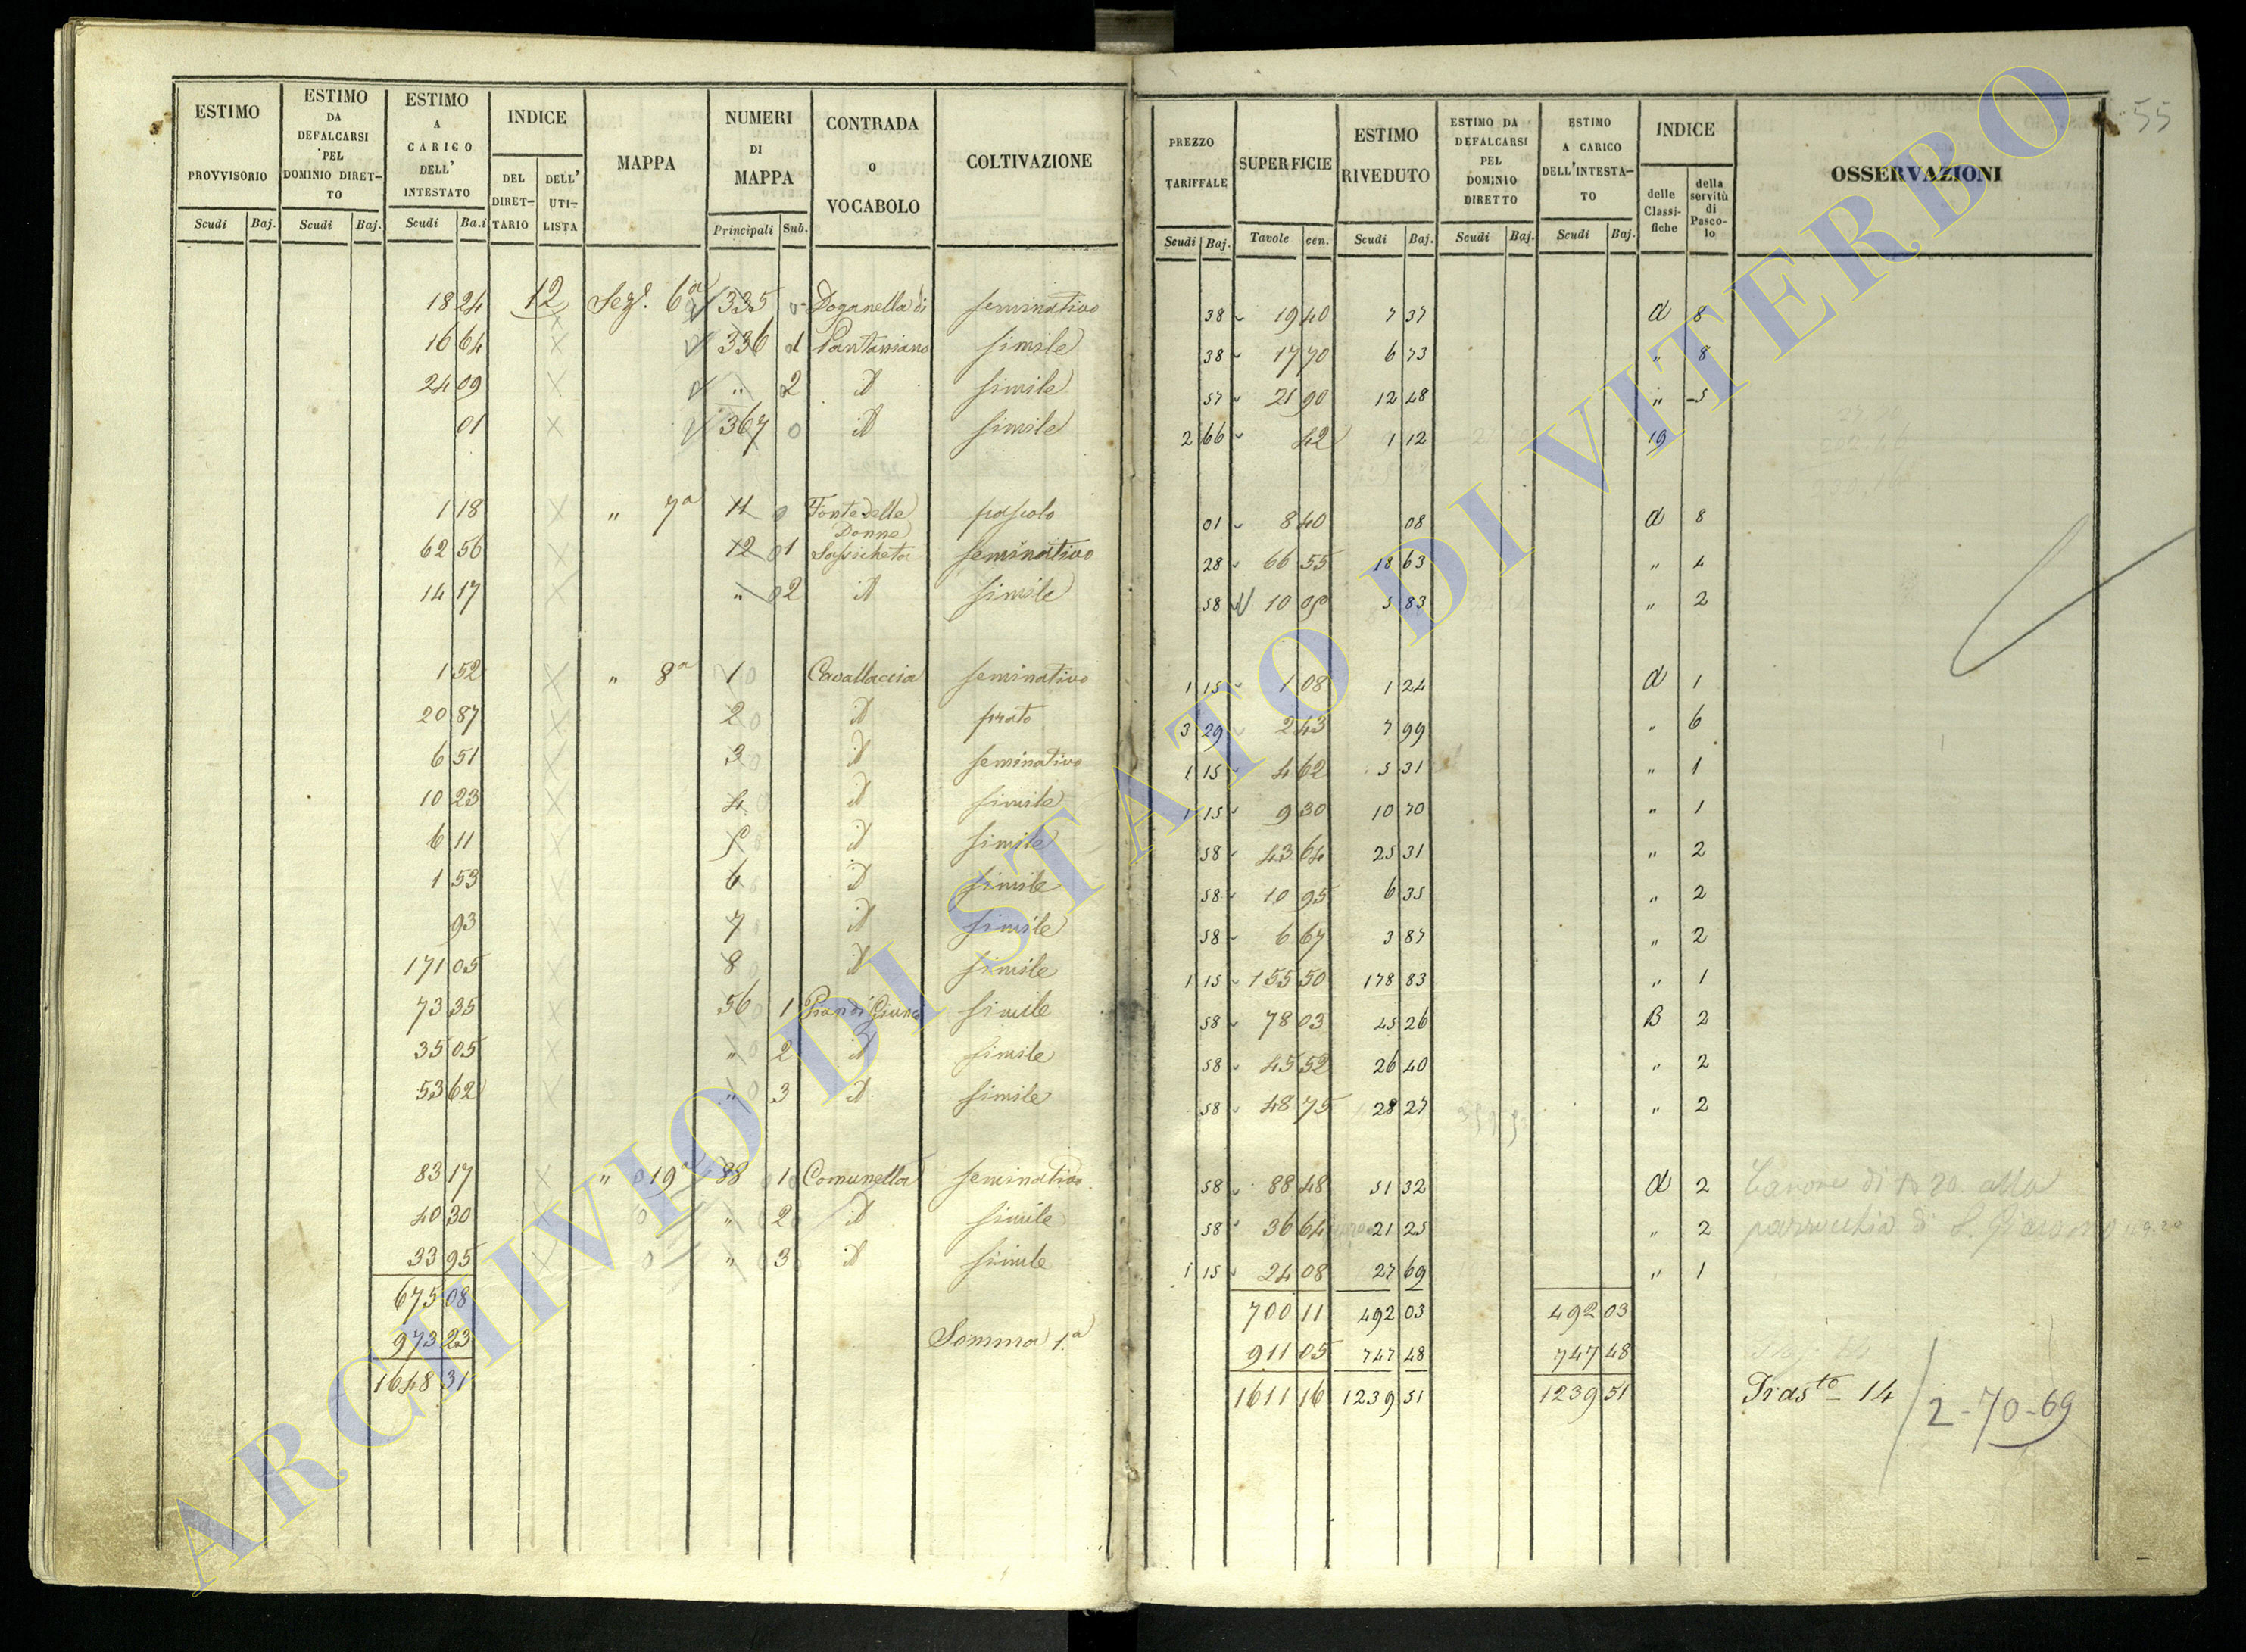 55
ESTIMO PROVVISORIO | ESTIMO DA DEFALCARSI PEL DOMINIO DIRET- TO | ESTIMO A CARICO DELL' INTESTATO | INDICE | MAPPA | NUMERI DI MAPPA | CONTRADA o VOCABOLO | COLTIVAZIONE | PREZZO TARIFFALE | SUPERFICIE | ESTIMO RIVEDUTO | ESTIMO DA DEFALCARSI PEL DOMINIO DIRETTO | ESTIMO A CARICO DELL'INTESTA- TO | INDICE | OSSERVAZIONI
DEL DIRET- TARIO | DELL' UTI- LISTA | delle Classi- fiche | della servitù di Pasco- lo
Scudi | Baj. | Scudi | Baj. | Scudi | Ba.i | Principali | Sub. | Scudi | Baj. | Tavole | cen. | Scudi | Baj. | Scudi | Baj. | Scudi | Baj.
18 24 | 12 | Sege. 6a | 335 | Doganella di | seminativo | 38 | 19 40 | 7 37 | d | 8
16 64 | 336 | 1 | Pantaniano | simile | 38 | 17 70 | 6 73 | " | 8
24 09 | " | 2 | id | simile | 57 | 21 90 | 12 48 | " | 5
01 | 367 | 0 | id | simile | 2 66 | 42 | 1 12 | 19
1 18 | " 7a | 11 | 0 | Fonte delle Donne | pascolo | 01 | 8 40 | 08 | d | 8
62 56 | 12 | 1 | Sassicheto | seminativo | 28 | 66 55 | 18 63 | " | 4
14 17 | " | 2 | id | simile | 58 | 10 05 | 5 83 | " | 2
1 52 | " 8a | 1 | Cavallaccia | seminativo | 1 15 | 1 08 | 1 24 | d | 1
20 87 | 2 | id | prato | 3 29 | 2 43 | 7 99 | " | 6
6 51 | 3 | id | seminativo | 1 15 | 4 62 | 5 31 | " | 1
10 23 | 4 | id | simile | 1 15 | 9 30 | 10 70 | " | 1
6 11 | 5 | id | simile | 58 | 43 64 | 25 31 | " | 2
1 53 | 6 | id | simile | 58 | 10 95 | 6 35 | " | 2
93 | 7 | id | simile | 58 | 6 67 | 3 87 | " | 2
171 05 | 8 | id | simile | 1 15 | 155 50 | 178 83 | " | 1
73 35 | 56 | 1 | Pian di Giunco | simile | 58 | 78 03 | 45 26 | B | 2
35 05 | " | 2 | id | simile | 58 | 45 52 | 26 40 | " | 2
53 62 | " | 3 | id | simile | 58 | 48 75 | 28 27 | " | 2
83 17 | " 19 | 88 | 1 | Comunella | seminativo | 58 | 88 48 | 51 32 | d | 2 | Canone di 20 alla
40 30 | " | 2 | id | simile | 58 | 36 64 | 21 25 | " | 2 | parrocchia di S. Giacomo
33 95 | " | 3 | id | simile | 1 15 | 24 08 | 27 69 | " | 1
675 08 | 700 11 | 492 03 | 492 03
973 23 | Somma 1a | 911 05 | 747 48 | 747 48
1648 31 | 1611 16 | 1239 51 | 1239 51 | Trasto 14 / 2-70-69
ARCHIVIO DI STATO DI VITERBO